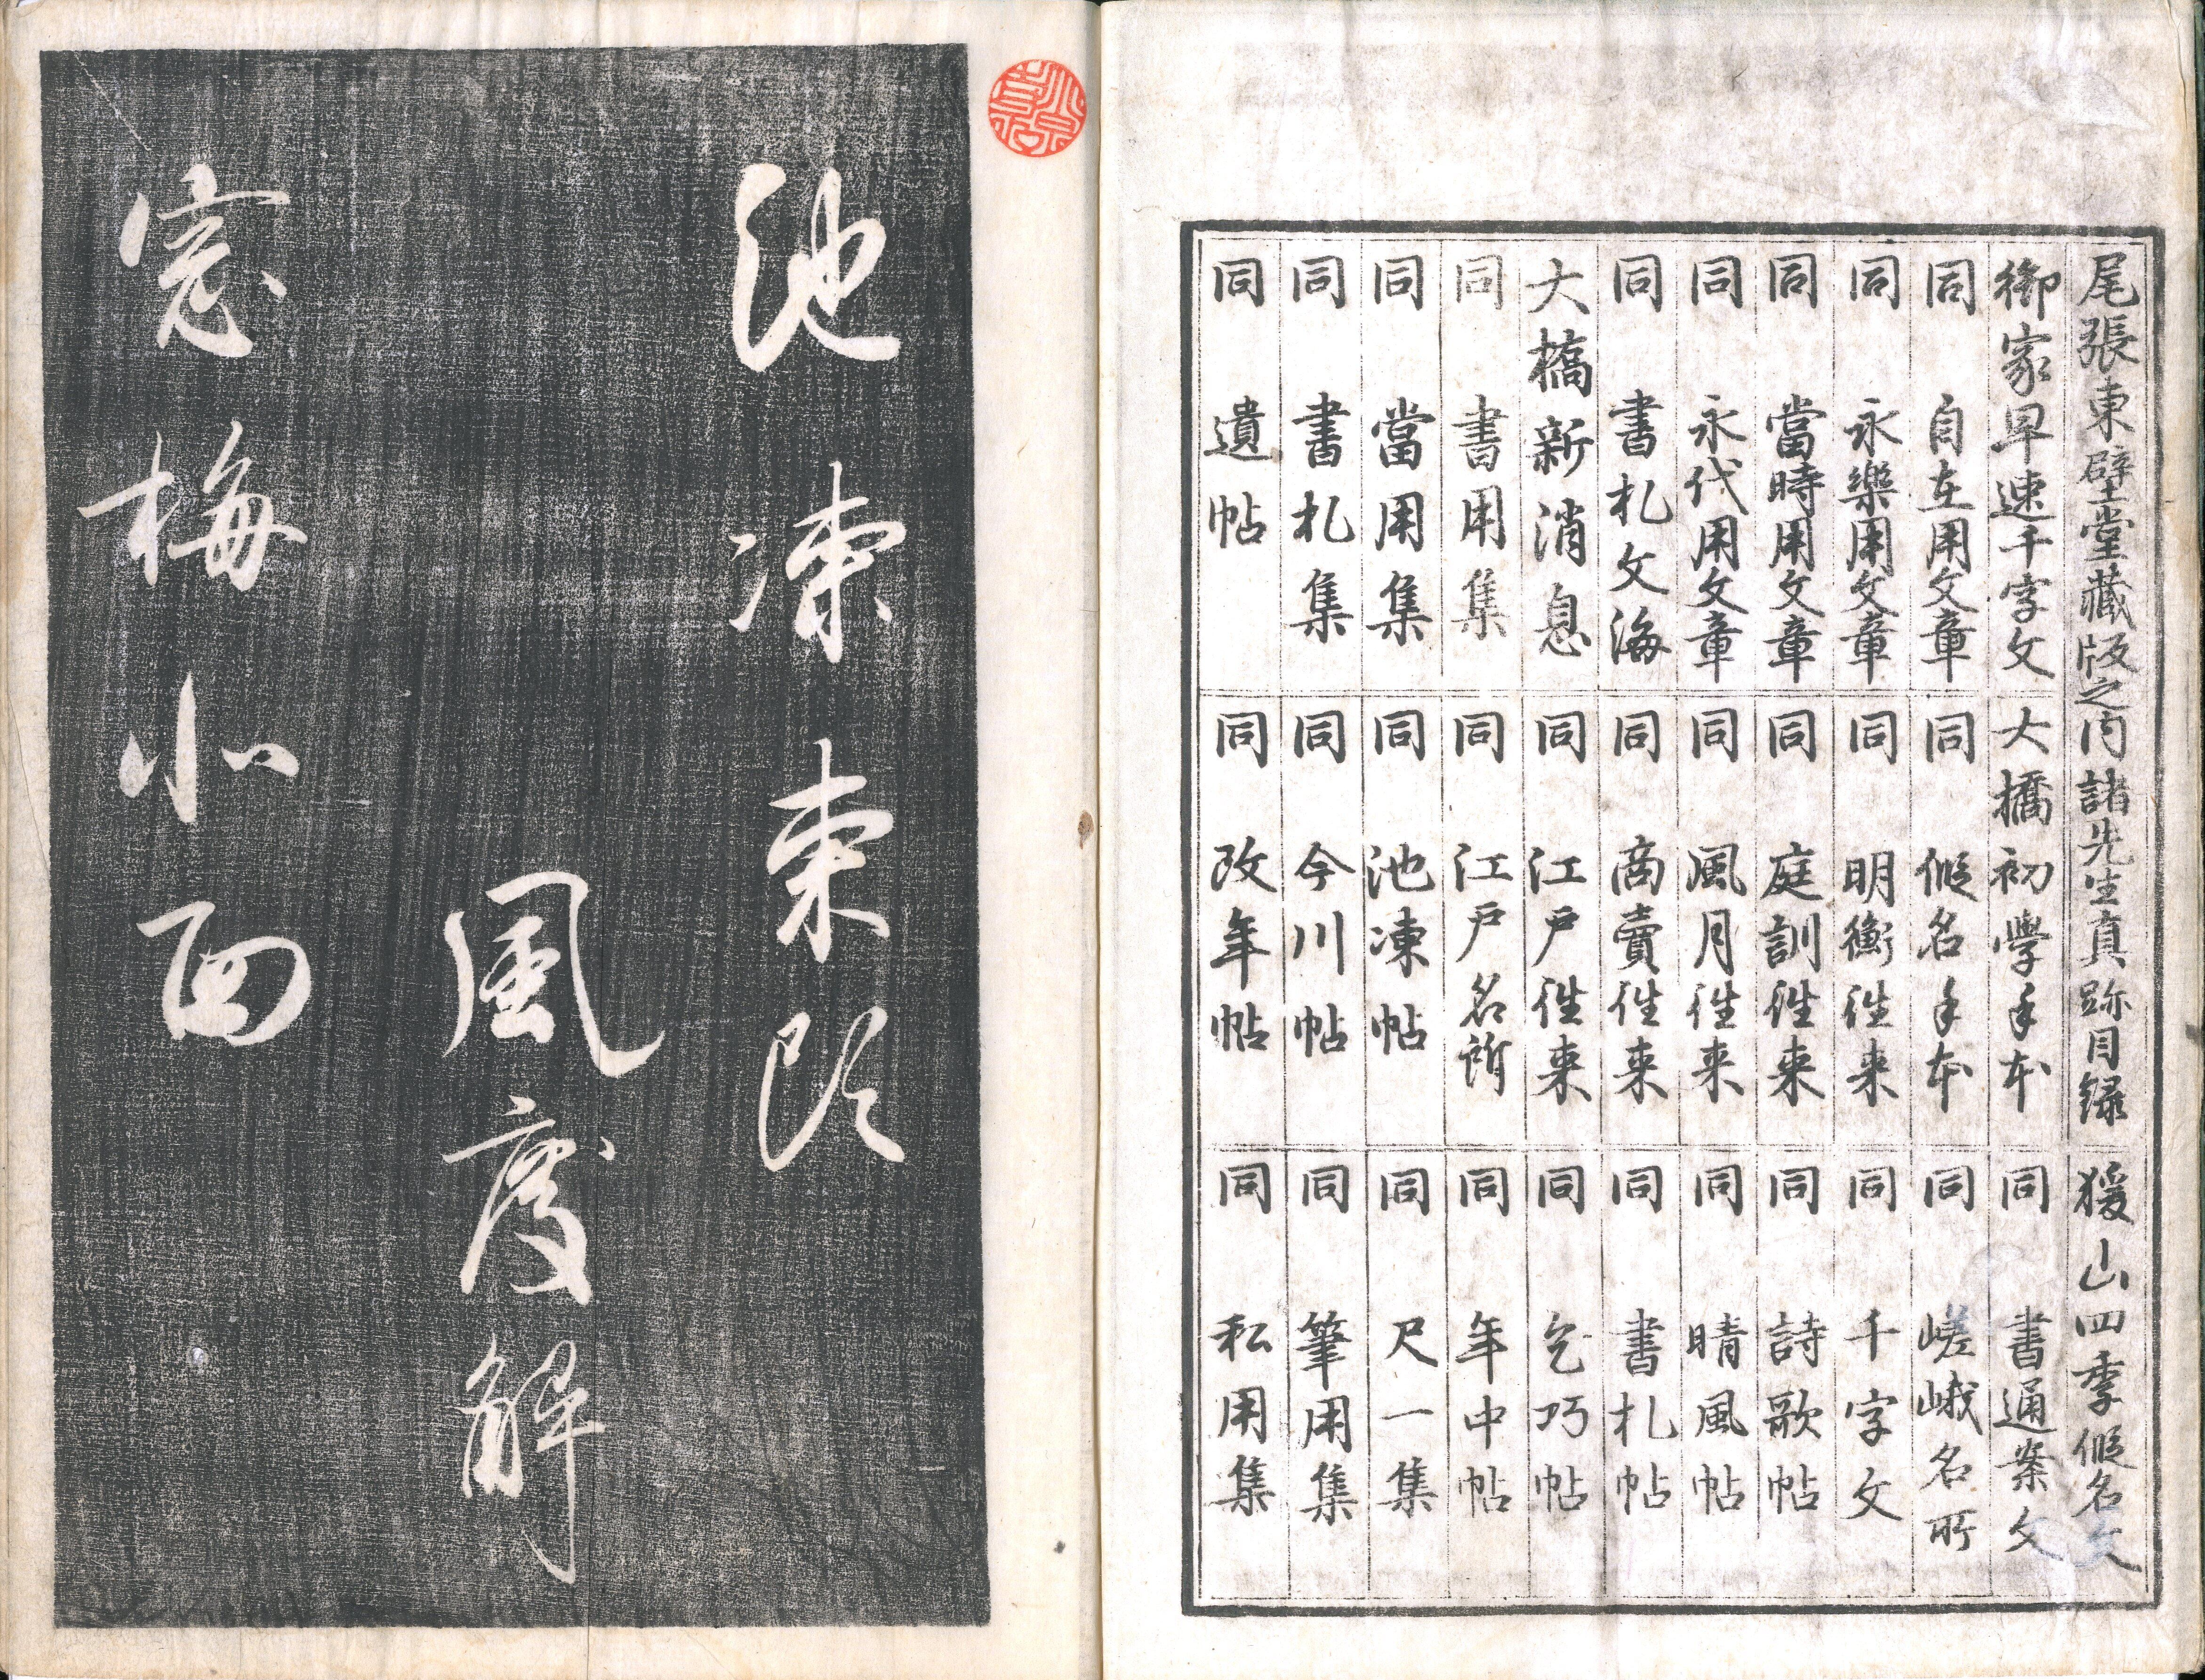 尾張東壁堂藏版之内諸先生真跡目録
御家早速千字文
同 自在用文章
同 永樂用文章
同 當時用文章
同 永代用文章
同 書札文海
大橋新消息
同 書用集
同 當用集
同 書札集
同 遺帖
大橋初學手本
同 假名手本
同 明衡往来
同 庭訓往来
同 風月往来
同 商賣往来
同 江戸往来
同 江戸名所
同 池凍帖
同 今川帖
同 改年帖
猨山四季假名文
同 書通案文
同 嵯峨名所
同 千字文
同 詩歌帖
同 晴風帖
同 書札帖
同 乞巧帖
同 年中帖
同 尺一集
同 筆用集
同 私用集
池凍東頭
風度解
窓梅北面